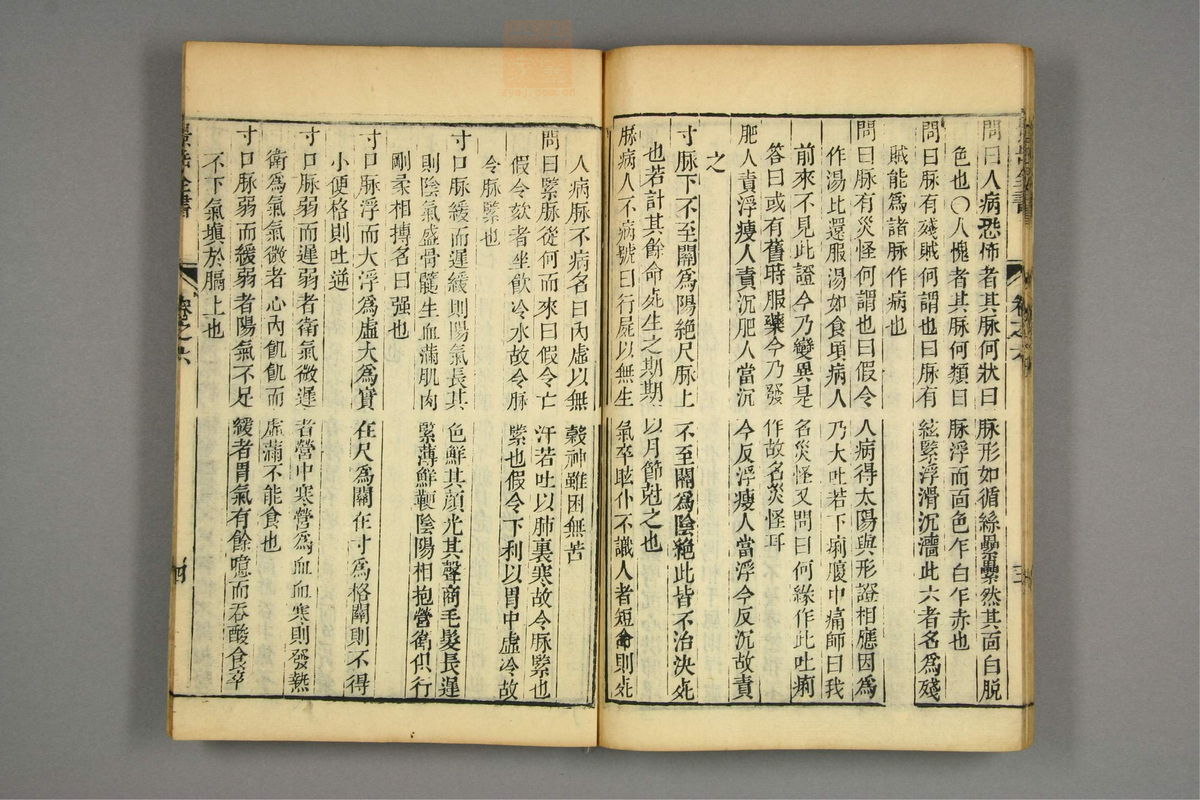 問曰人病恐怖者其脉何狀曰脉形如循絲纍纍然其面白脫
色也〇人愧者其脉何類曰脉浮而面色乍白乍赤也
問曰脉有殘賊何謂也曰脉有絃緊浮滑沉濇此六者名爲殘
賊能爲諸脉作病也
問曰脉有災怪何謂也曰假令人病得太陽與形證相應因爲
作湯比還服湯如食頃病人乃大吐若下痢腹中痛師曰我
前來不見此證今乃變異是名災怪又問曰何緣作此吐痢
答曰或有舊時服藥今乃發作故名災怪耳
肥人責浮瘦人責沉肥人當沉今反浮瘦人當浮今反沉故責
之
寸脉下不至關爲陽絕尺脉上不至關爲陰絶此皆不治決死
也若計其餘命死生之期期以月節尅之也
脉病人不病號曰行屍以無生氣卒眩仆不識人者短命則死
人病脉不病名曰內虛以無穀神雖困無苦
問曰緊脉從何而來曰假令亡汗若吐以肺裏寒故令脉緊也
假令欬者坐飮冷水故令脉緊也假令下利以胃中虛冷故
令脉緊也
寸口脉緩而遲緩則陽氣長其色鮮其顔光其聲商毛髮長遲
則陰氣盛骨髓生血滿肌肉緊薄鮮鞕陰陽相抱營衛俱行
剛柔相搏名曰强也
寸口脉浮而大浮爲虛大爲實在尺爲關在寸爲格關則不得
小便格則吐逆
寸口脉弱而遲弱者衛氣微遲者營中寒營爲血血寒則發熱
衛爲氣氣微者心內飢飢而虛滿不能食也
寸口脉弱而緩弱者陽氣不足緩者胃氣有餘噫而吞酸食卒
不下氣塡於膈上也
景岳全書
卷之六